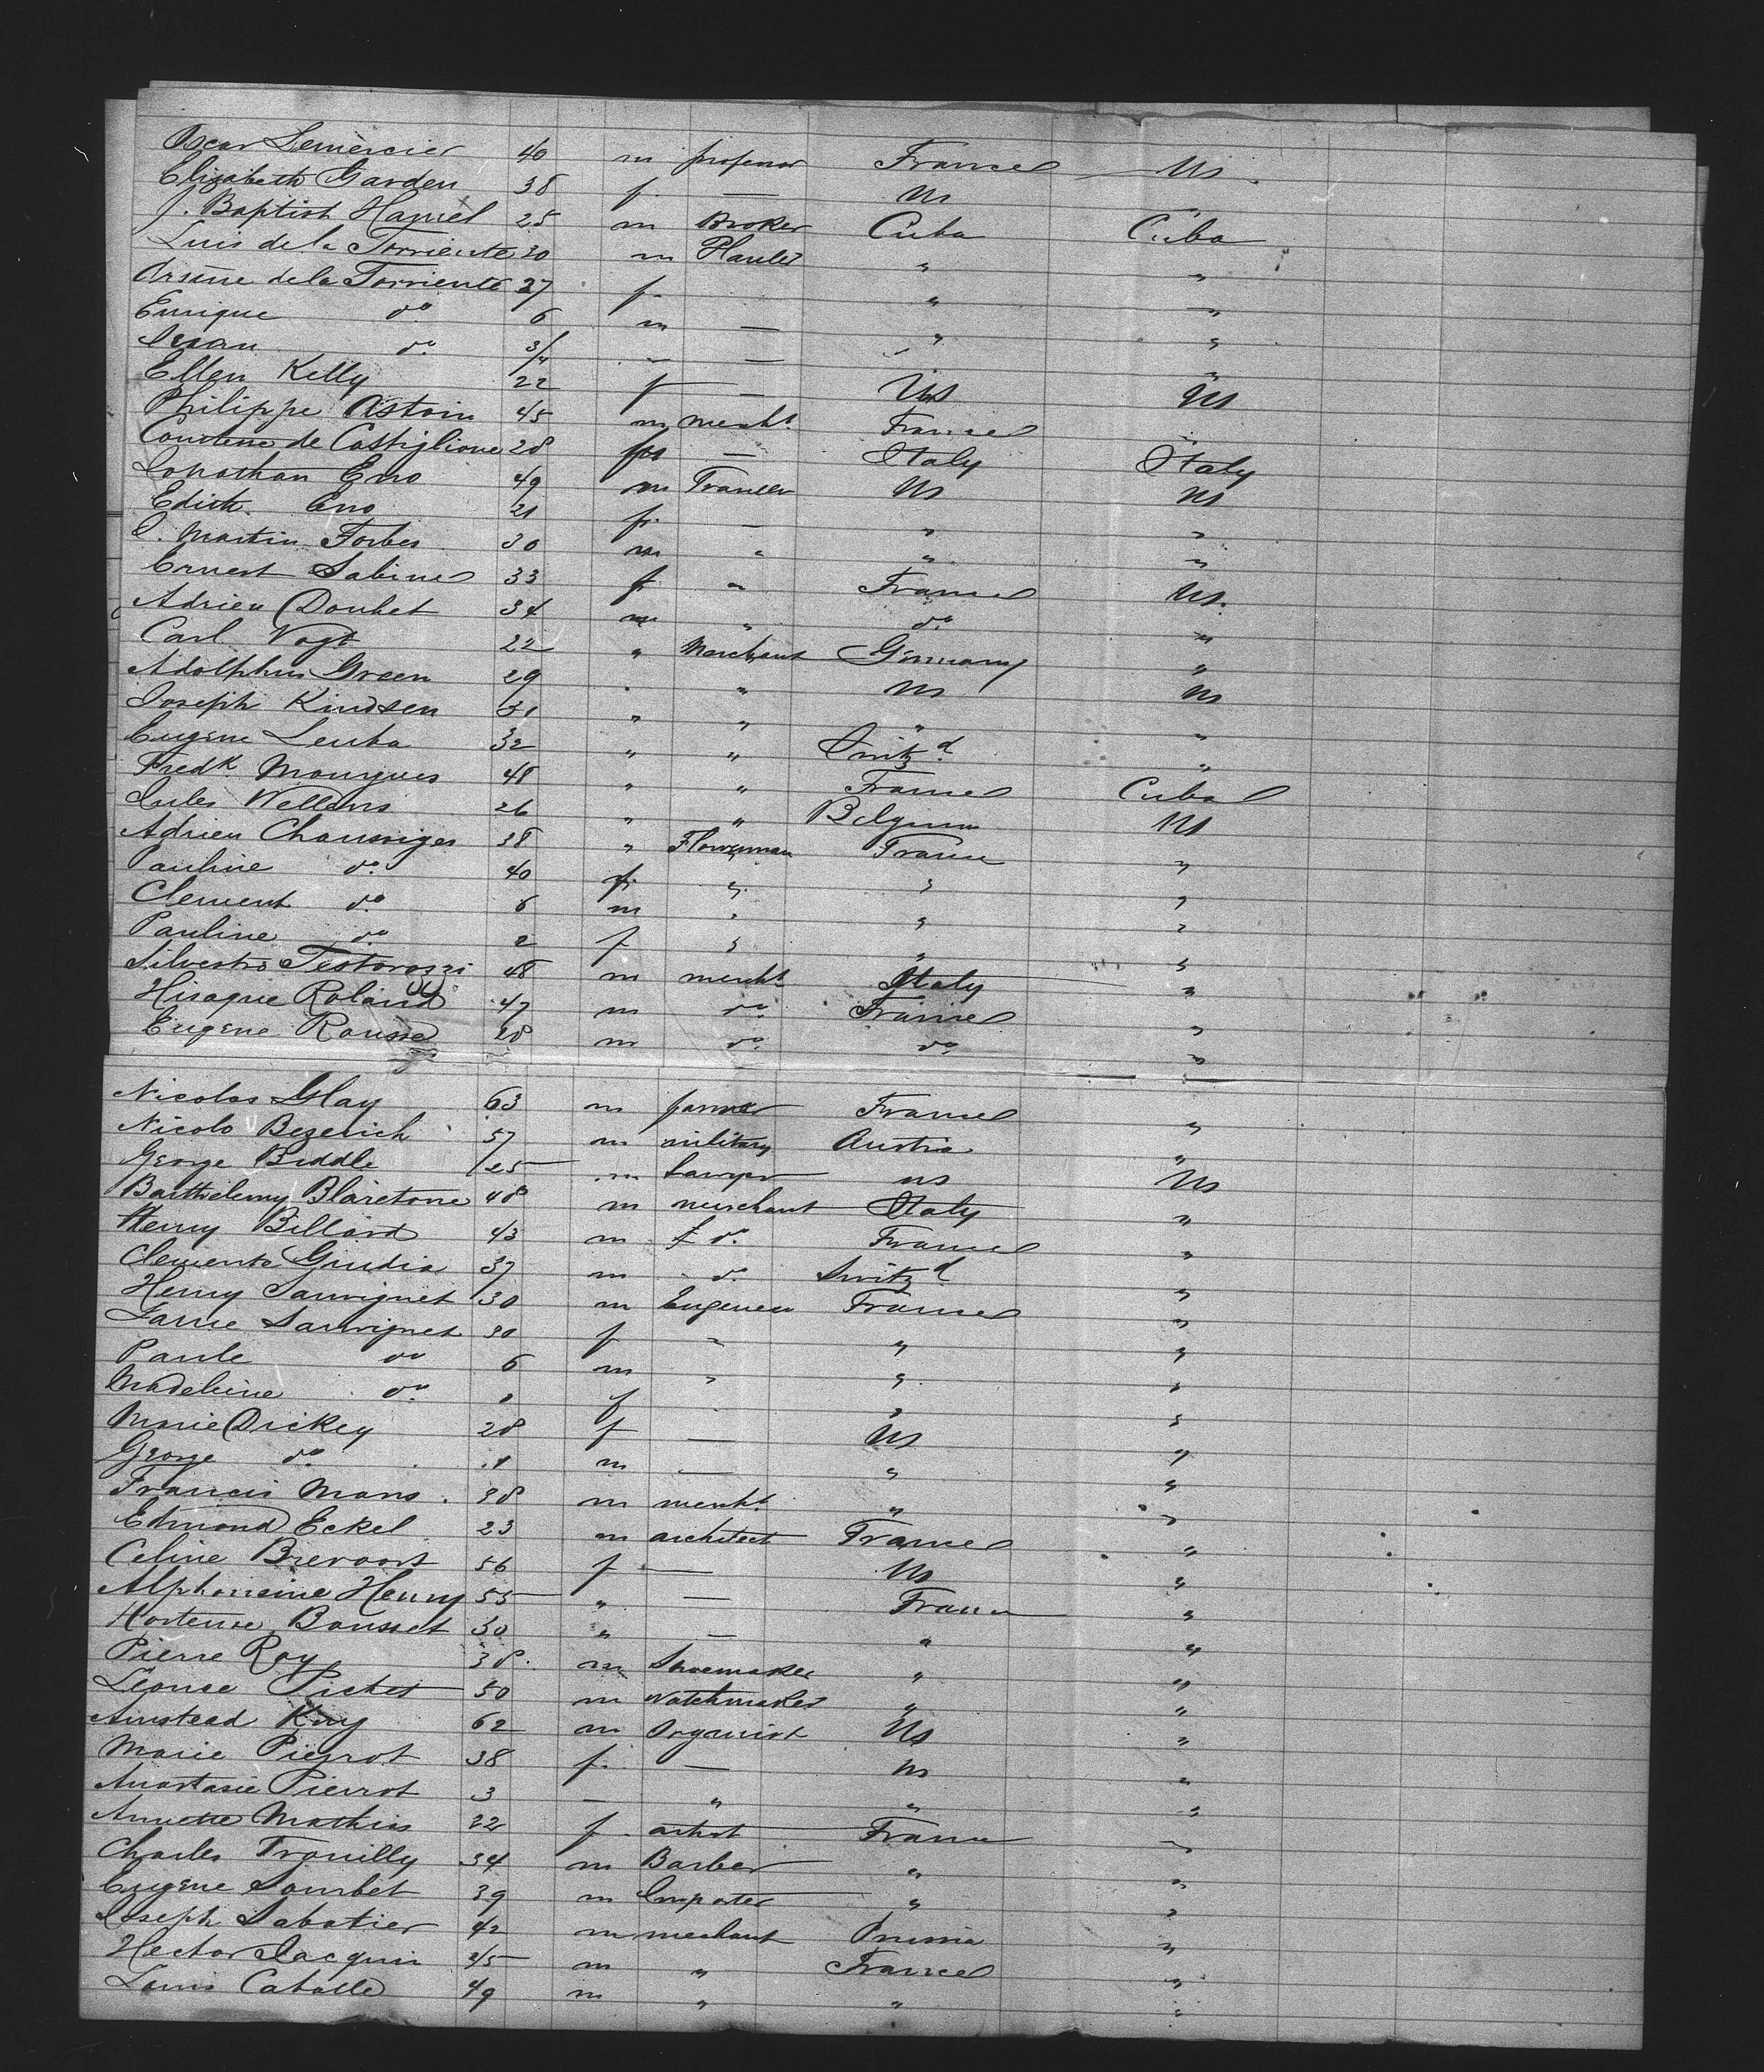 Oscar Lemercier 40 m professor France Us
Elizabeth Garden 38 f — Us
J. Baptist Hamel 25 m Broker Cuba Cuba
Luis de la Torriente 30 m Planter " "
Arsène de la Torriente 27 f " "
Enrique do 6 m — " "
do 3/4 — —
Ellen Kelly 22 f — Us Us
Philippe Astoin 45 m mercht France "
Comtesse de Castiglione 28 — Italy Italy
Jonathan Eno 49 m Us Us
Edith Eno 21 f — " "
J. Martin Forbes 30 m " " "
Ernest Sabine 33 f " France Us.
Adrien Doubet 34 m " do "
Carl Vogt 22 " Merchant Germany "
Adolphus Green 29 " " Us Us
Joseph Kindsen 31 " " " "
Eugene Leuba 32 " " Switzd "
Fredk Mourgues 48 " " France Cuba
Jules Wellens 26 " " Belgium Us
Adrien 38 " France "
Pauline do 40 f " " "
Clement do 6 m " " "
Pauline do 2 f " " "
Silvestro 48 m mercht Italy "
Roland 47 m do France "
Eugene Rousse 28 m do do "
Nicolas Glay 63 m farmer France "
Nicolo Bezerich 57 m military Austria "
George Biddle 25 m Lawyer us Us
Barthelemy Blaretone 48 m merchant Italy "
Henry Billard 43 m do France "
Clemente Giudia 37 m do Switzd "
Henry Sauvignet 30 m Engeneer France "
Sauvignet 30 f " " "
Paule do 6 m " " "
Madeleine do f " " "
Marie Dickey 28 f — Us "
George do m — " "
Francis Mans 38 m mercht " "
Edmond Eckel 23 m architect France "
Celine Brevoort 56 f — Us "
Alphonsine Henry 55 " — France "
Hortense Bousset 30 " — " "
Pierre Roy 38 m Shoemaker " "
Léonce Pichet 50 m Watchmaker " "
Amstead King 62 m Organist Us "
Marie Pierrot 38 f — Us "
Anastasie Pierrot 3 — " " "
Annette Mathias 22 f artist France "
Charles Trouilly 34 m Barber " "
Eugene Sourbet 39 m Importer " "
Joseph Sabatier 42 m mechant "
Hector Jacquin 45 m " France "
Louis Caballe 49 m " " "